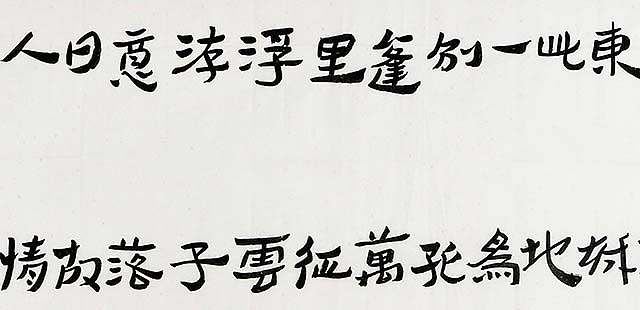 東城
此地
一爲
別孤
蓬萬
里征
浮雲
游子
意落
日故
人情